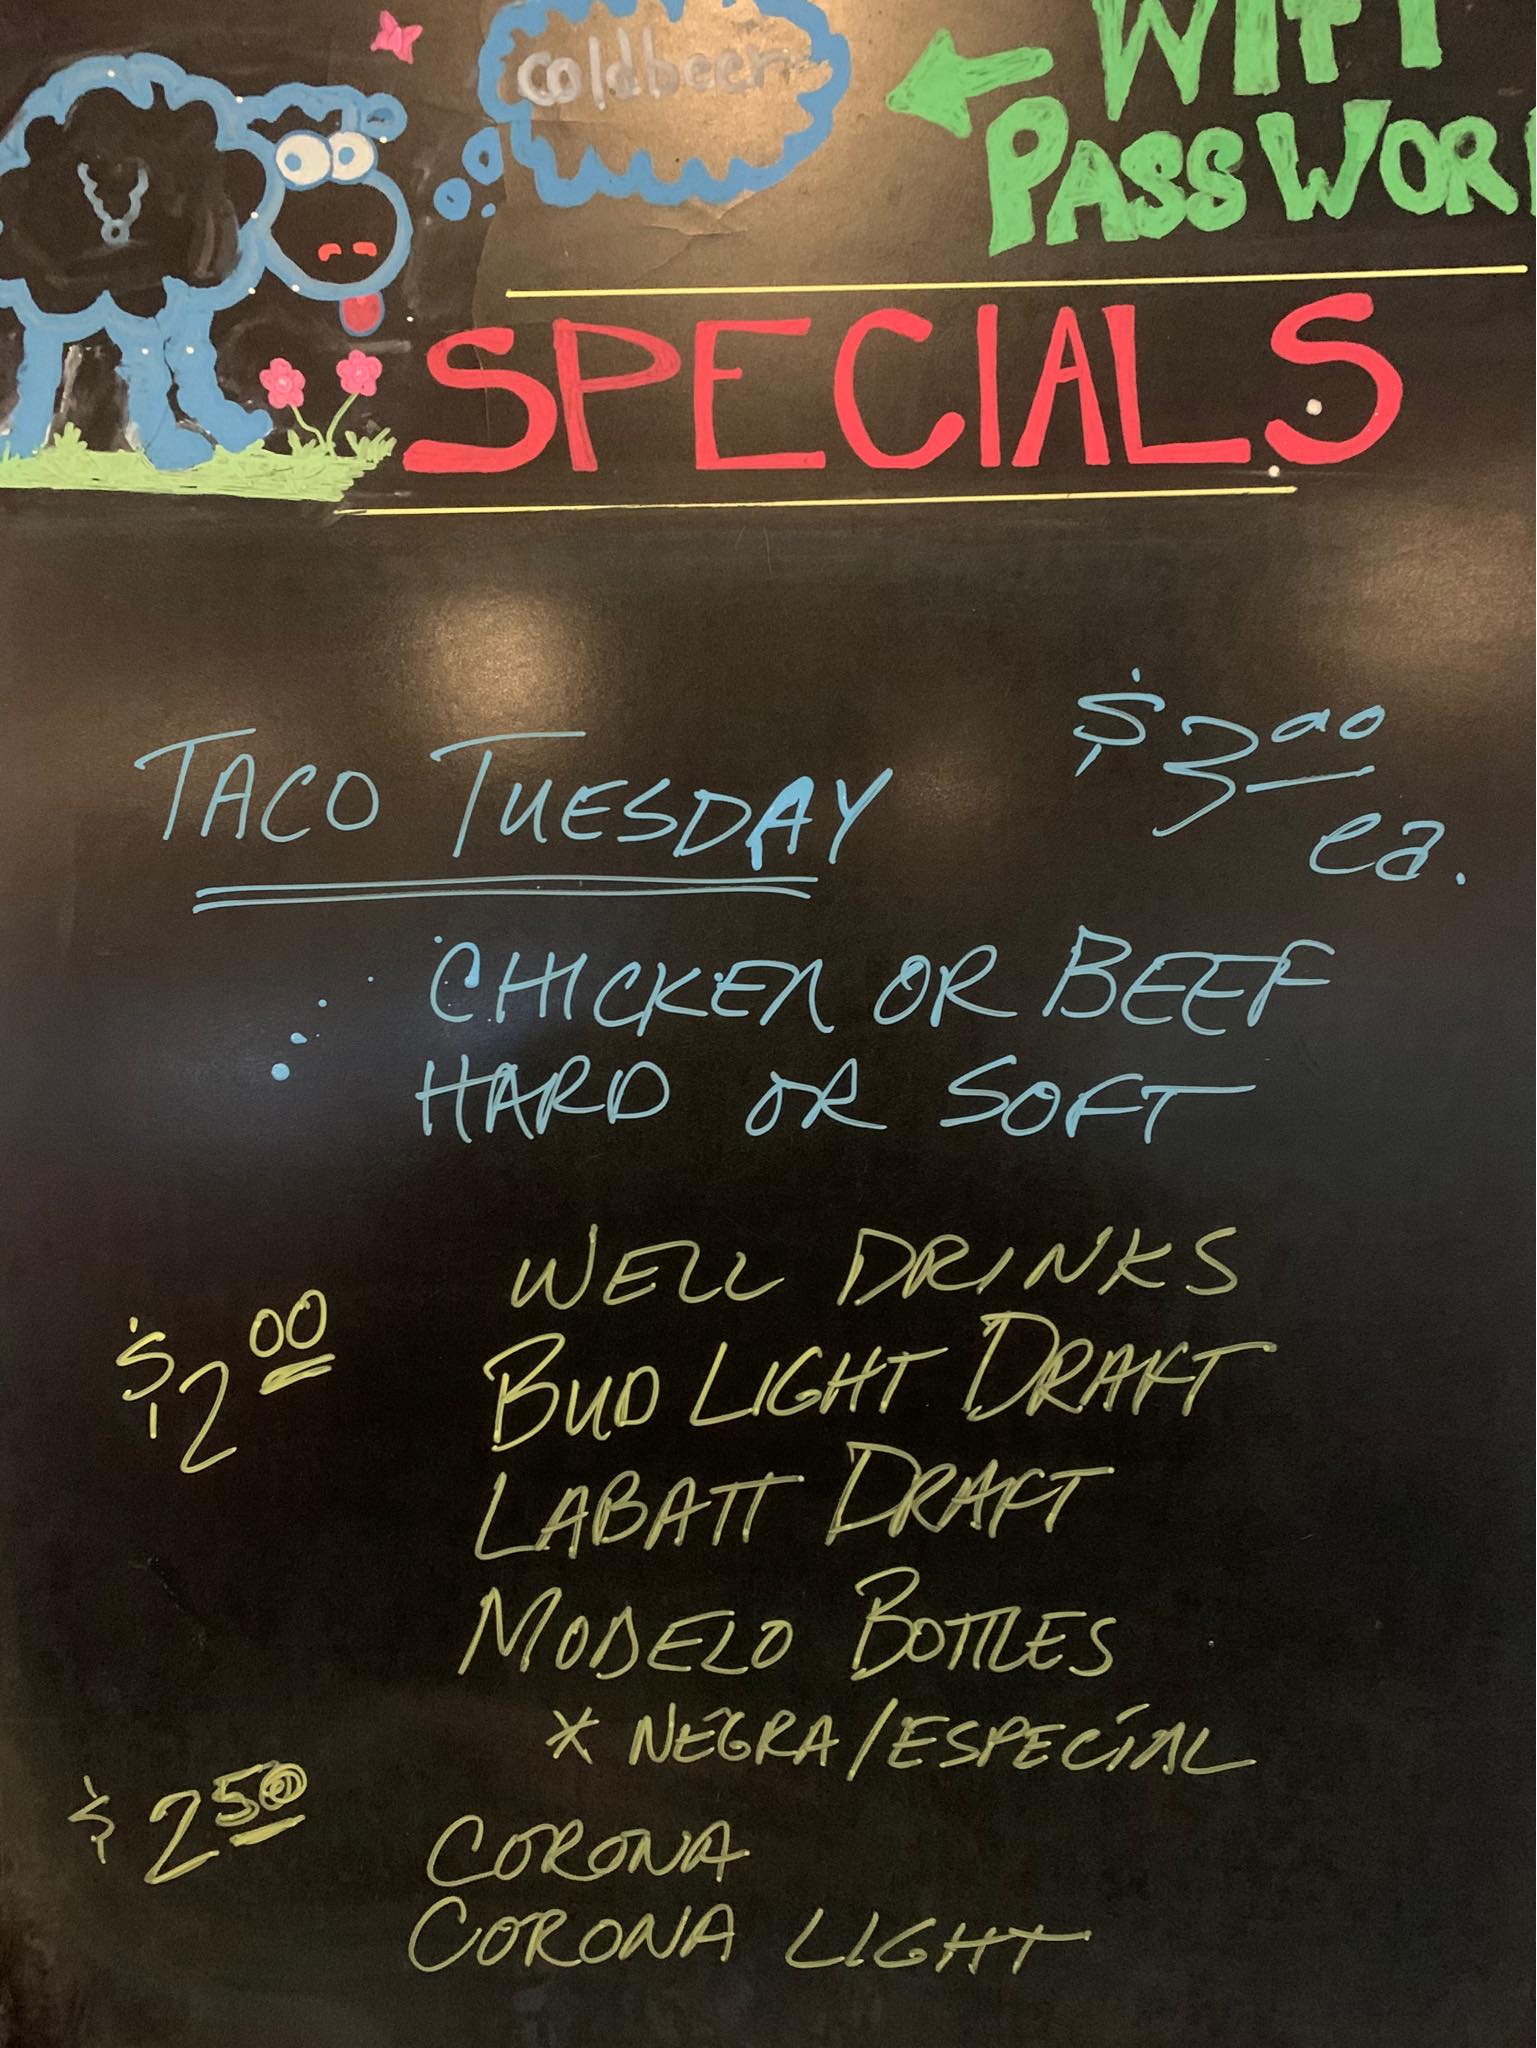 coldbeer
WIFI
PASSWOR
SPECIALS
TACO TUESDAY
$3.00
ea.
CHICKEN OR BEEF
HARD OR SOFT
WELL DRINKS
$2.00
BUD LIGHT DRAFT
LABATT DRAFT
MODELO BOTTLES
* NEGRA/ESPECIAL
$2.50
CORONA
CORONA LIGHT